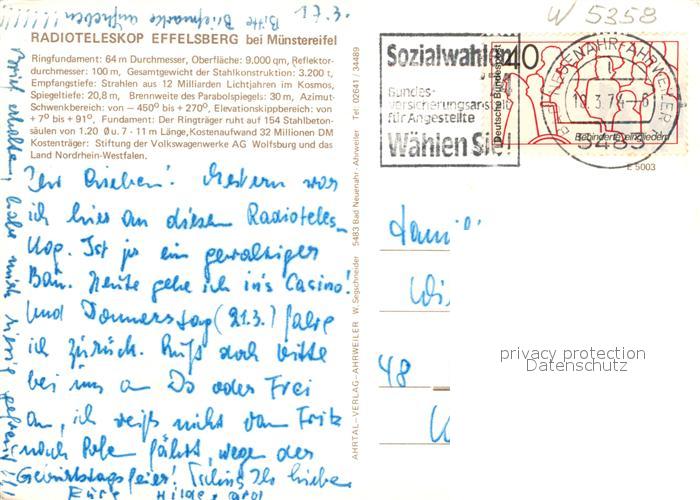 W 5358
Bitte Briefmarke aufheben !!!!!!!!!
RADIOTELESKOP EFFELSBERG bei Münstereifel
Ringfundament: 64 m Durchmesser, Oberfläche: 9.000 qm, Reflektor-
durchmesser: 100 m, Gesamtgewicht der Stahlkonstruktion: 3.200 t,
Empfangstiefe: Strahlen aus 12 Milliarden Lichtjahren im Kosmos,
Spiegeltiefe: 20,8 m, Brennweite des Parabolspiegels: 30 m, Azimut-
Schwenkbereich: von – 450° bis + 270°, Elevationskippbereich: von
+ 7° bis + 91°, Fundament: Der Ringträger ruht auf 154 Stahlbeton-
säulen von 1.20 Ø u. 7 - 11 m Länge, Kostenaufwand 32 Millionen DM
Kostenträger: Stiftung der Volkswagenwerke AG Wolfsburg und das
Land Nordrhein-Westfalen.
Ihr Lieben! Gestern war
ich hier an diesem Radioteles-
kop. Ist ja ein gewaltiger
Bau. Heute gehe ich ins Casino!
Und Donnerstag (21.3.) fahre
ich zurück. Ruft doch bitte
bei uns an Do oder Frei
an, ich weiß nicht wann Fritz
nach fährt, wegen der
Geburtstagsfeier!
Eure Hilde
Brief erhalten, habe mich riesig gefreut!!
AHRTAL-VERLAG-AHRWEILER W. Segschneider 5483 Bad Neuenahr - Ahrweiler Tel. 02641 / 34489
Sozialwahlen
Bundes-
versicherungsanstalt
für Angestellte
Wählen Sie!
Deutsche Bundespost
40
Behinderte eingliedern
BAD NEUENAHR-AHRWEILER
5483
E 5003
Fami
48
privacy protection
Datenschutz